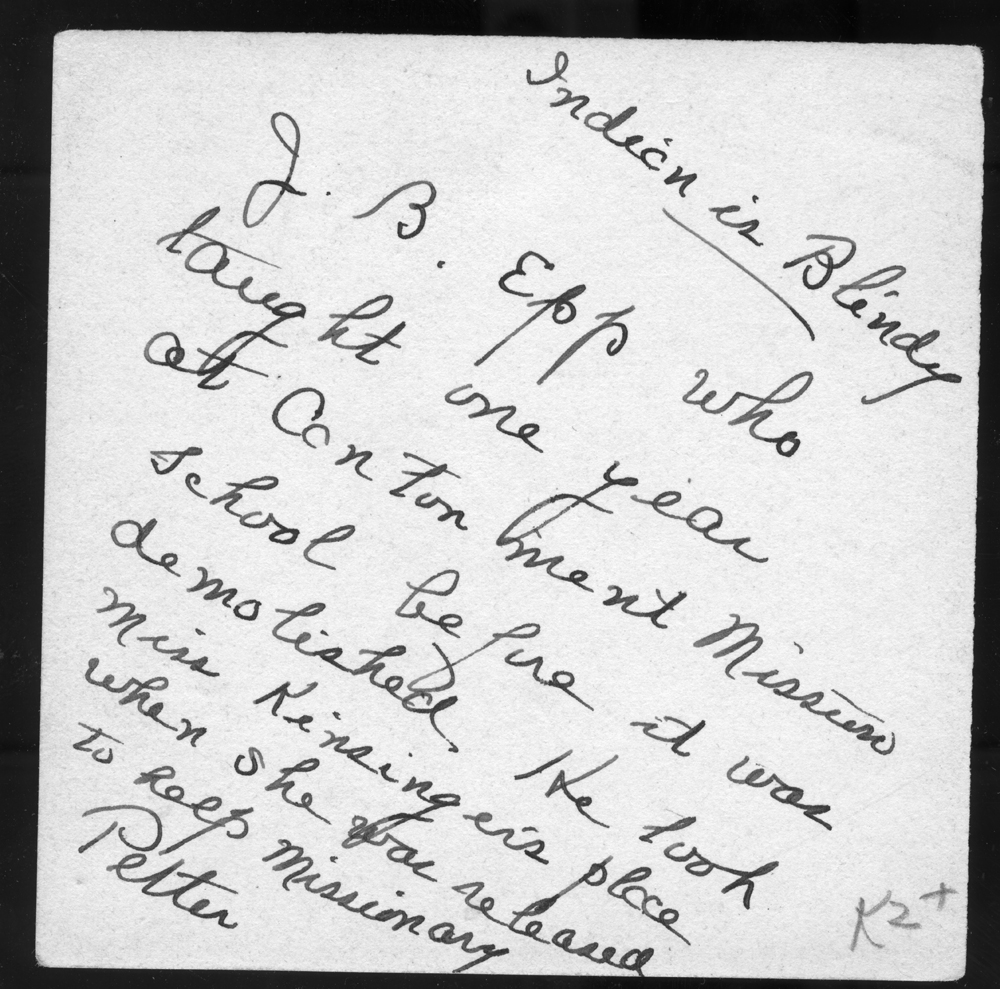 Indian is Blindy
J. B. Epp who
taught one year
at Cantonment Mission
school before it was
demolished. He took
Miss Kinsinger's place
when she was released
to help Missionary
Petter
K2+